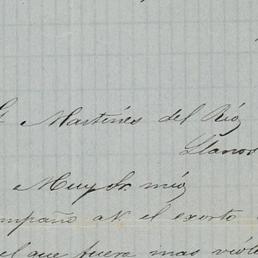 Martínes del Río
Llanos
Muy Sr. mío
ompaño a V. el exorto
el que fuera mas viole